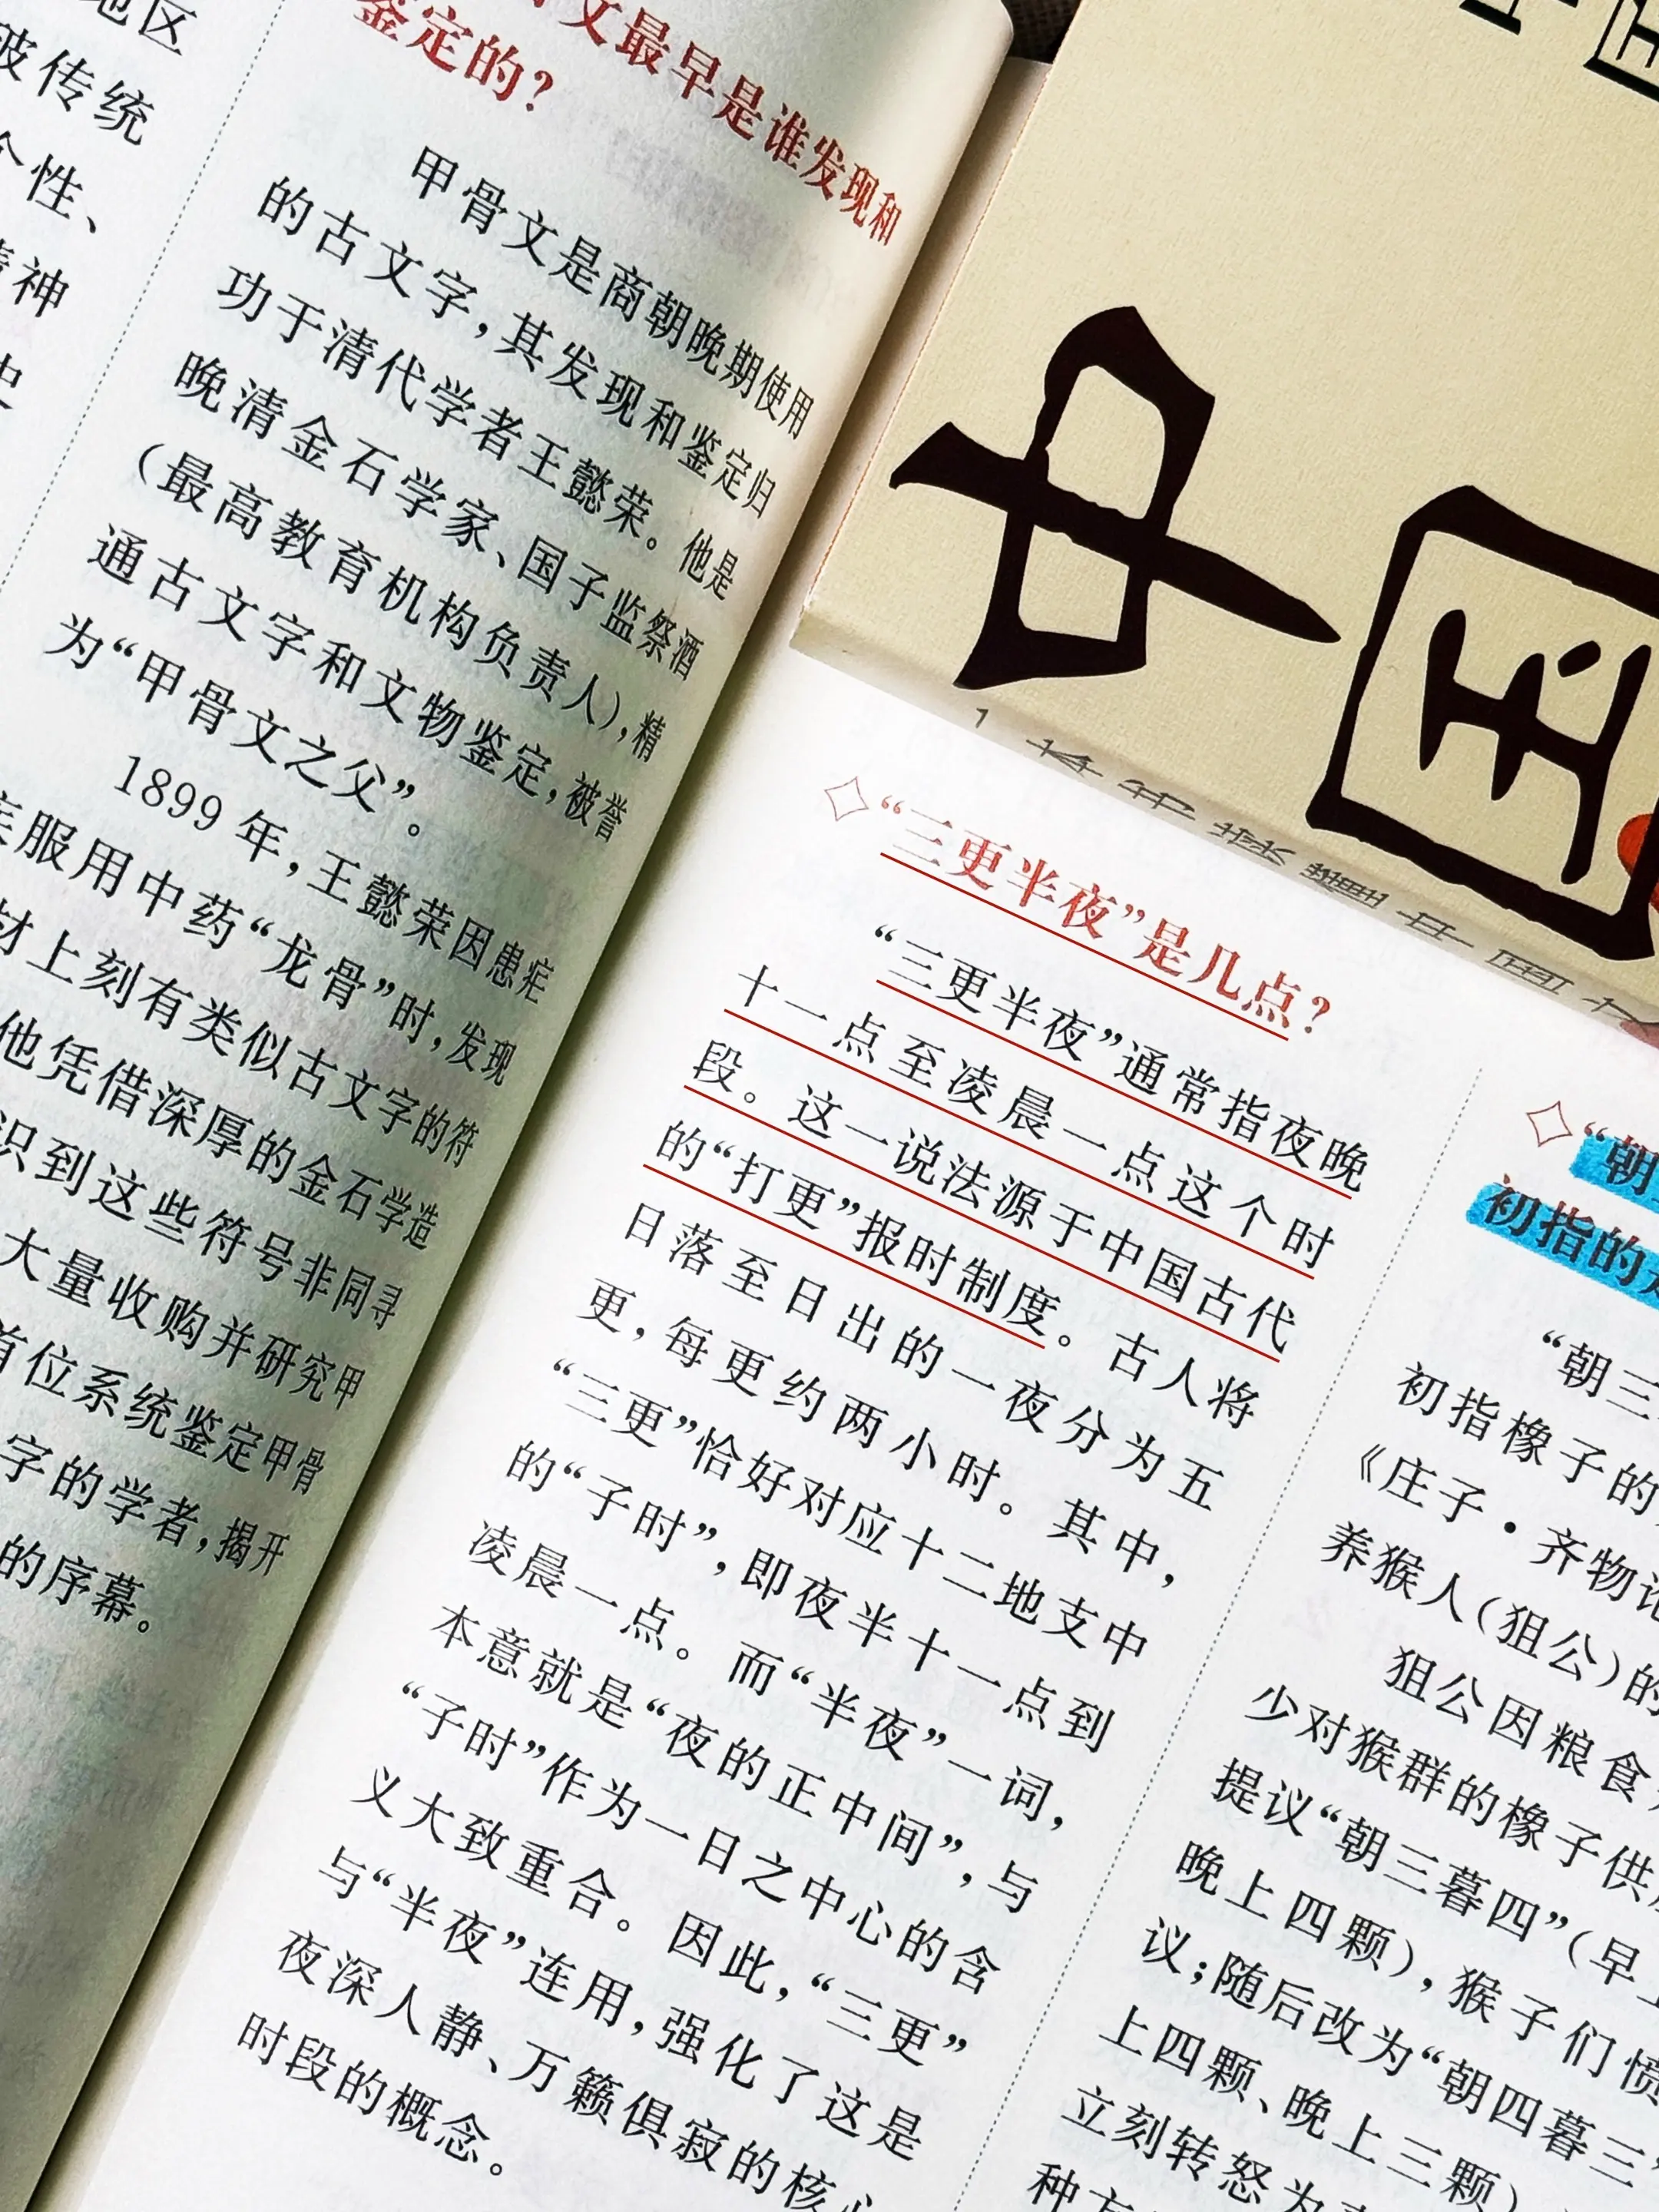 地区
被传统
个性、
精神
史
文最早是谁发现和
鉴定的？
甲骨文是商朝晚期使用
的古文字，其发现和鉴定归
功于清代学者王懿荣。他是
晚清金石学家、国子监祭酒
（最高教育机构负责人），精
通古文字和文物鉴定，被誉
为“甲骨文之父”。
1899年，王懿荣因患疟
疾服用中药“龙骨”时，发现
材上刻有类似古文字的符
他凭借深厚的金石学造
识到这些符号非同寻
大量收购并研究甲
首位系统鉴定甲骨
字的学者，揭开
的序幕。
中国
“三更半夜”是几点？
“三更半夜”通常指夜晚
十一点至凌晨一点这个时
段。这一说法源于中国古代
的“打更”报时制度。古人将
日落至日出的一夜分为五
更，每更约两小时。其中，
“三更”恰好对应十二地支中
的“子时”，即夜半十一点到
凌晨一点。而“半夜”一词，
本意就是“夜的正中间”，与
“子时”作为一日之中心的含
义大致重合。因此，“三更”
与“半夜”连用，强化了这是
夜深人静、万籁俱寂的核心
时段的概念。
“朝三
初指的是
“朝三
初指橡子的
《庄子·齐物论
养猴人（狙公）的
狙公因粮食
少对猴群的橡子供
提议“朝三暮四”（早上
晚上四颗），猴子们愤
议；随后改为“朝四暮三”
上四颗、晚上三颗）
立刻转怒为
种方